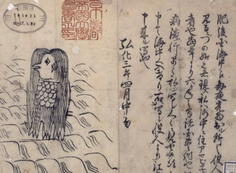 肥後国海中え毎夜光物出ル所之役人行
見るニづの如く者現ス私ハ海中ニ住アマビヱト申
者也当年より六ヶ年之間諸国豊作也併
病流行早々私写シ人々ニ見せ候得と
申て海中へ入けり右ハ写シ役人より江戸え
申来ル写也
弘化三年四月中旬